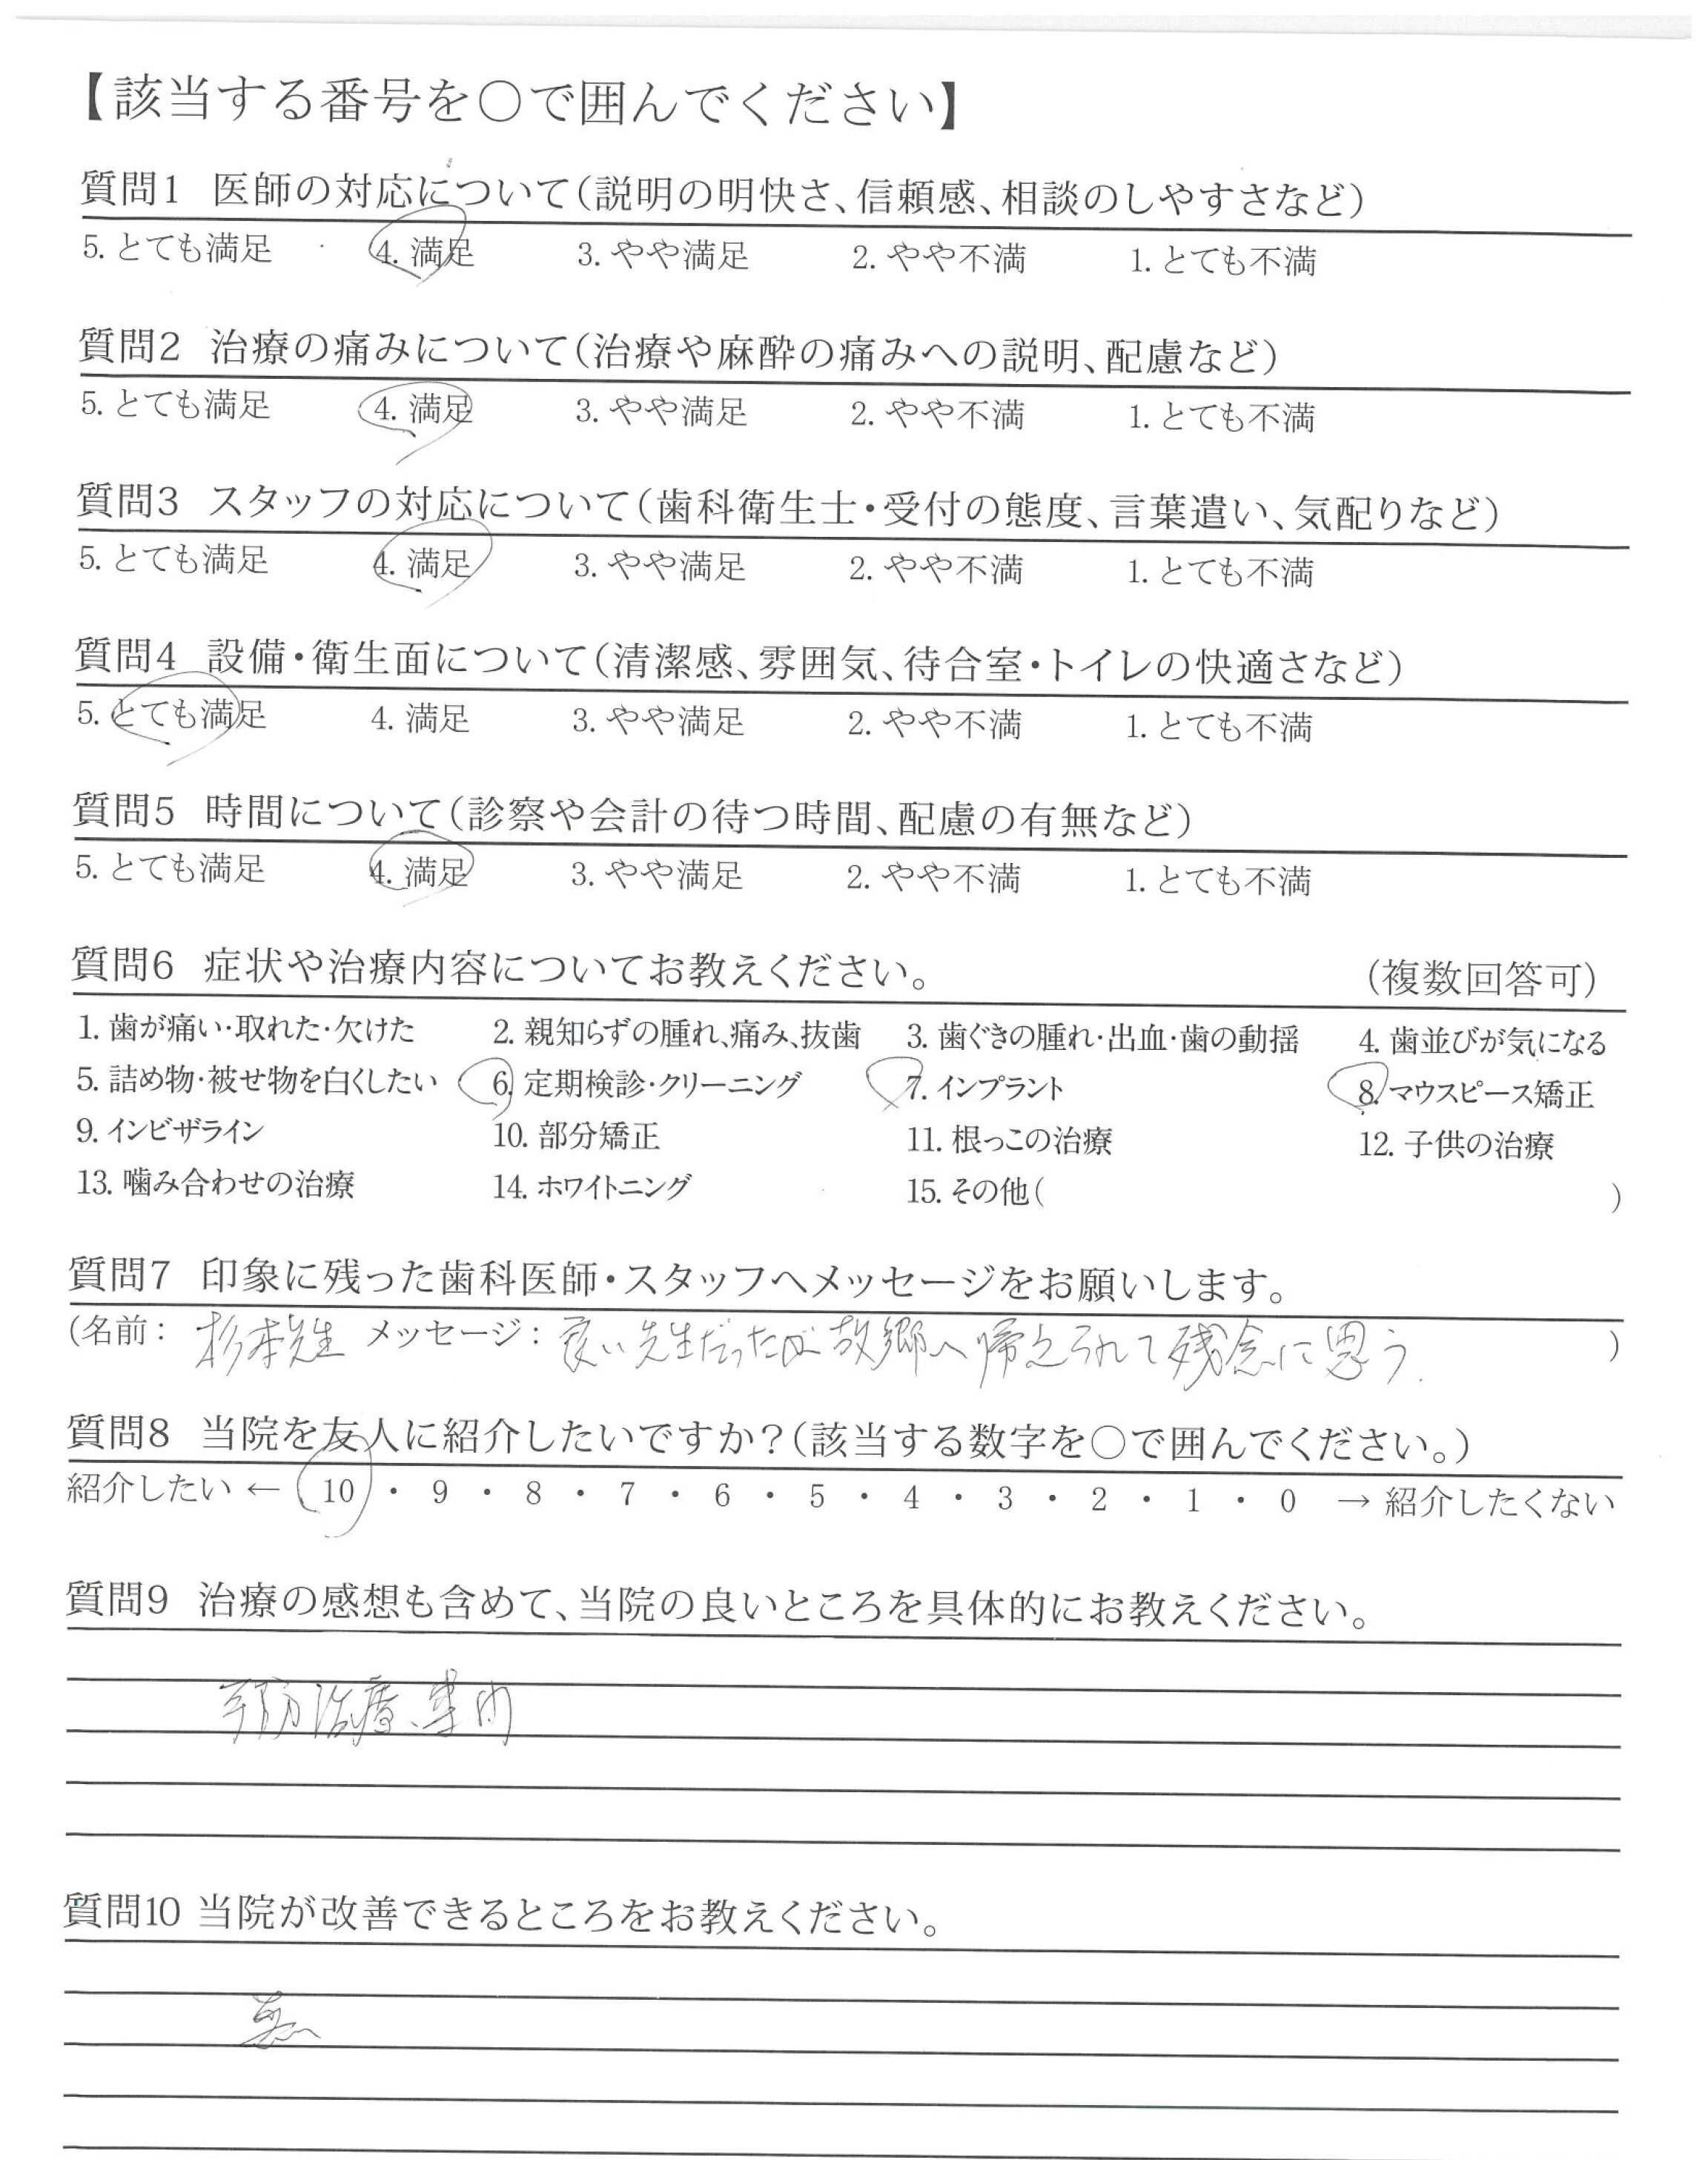 【該当する番号を○で囲んでください】
質問1 医師の対応について(説明の明快さ、信頼感、相談のしやすさなど)
5. とても満足 4. 満足 3. やや満足 2. やや不満 1. とても不満
質問2 治療の痛みについて(治療や麻酔の痛みへの説明、配慮など)
5. とても満足 4. 満足 3. やや満足 2. やや不満 1. とても不満
質問3 スタッフの対応について(歯科衛生士・受付の態度、言葉遣い、気配りなど)
5. とても満足 4. 満足 3. やや満足 2. やや不満 1. とても不満
質問4 設備・衛生面について(清潔感、雰囲気、待合室・トイレの快適さなど)
5. とても満足 4. 満足 3. やや満足 2. やや不満 1. とても不満
質問5 時間について(診察や会計の待つ時間、配慮の有無など)
5. とても満足 4. 満足 3. やや満足 2. やや不満 1. とても不満
質問6 症状や治療内容についてお教えください。 (複数回答可)
1. 歯が痛い・取れた・欠けた 2. 親知らずの腫れ、痛み、抜歯 3. 歯ぐきの腫れ・出血・歯の動揺 4. 歯並びが気になる
5. 詰め物・被せ物を白くしたい 6. 定期検診・クリーニング 7. インプラント 8. マウスピース矯正
9. インビザライン 10. 部分矯正 11. 根っこの治療 12. 子供の治療
13. 噛み合わせの治療 14. ホワイトニング 15. その他( )
質問7 印象に残った歯科医師・スタッフへメッセージをお願いします。
(名前: 杉本先生 メッセージ: 良い先生だったが故郷へ帰えられて残念に思う. )
質問8 当院を友人に紹介したいですか?(該当する数字を○で囲んでください。)
紹介したい ← 10 ・ 9 ・ 8 ・ 7 ・ 6 ・ 5 ・ 4 ・ 3 ・ 2 ・ 1 ・ 0 → 紹介したくない
質問9 治療の感想も含めて、当院の良いところを具体的にお教えください。
予防治療、専門
質問10 当院が改善できるところをお教えください。